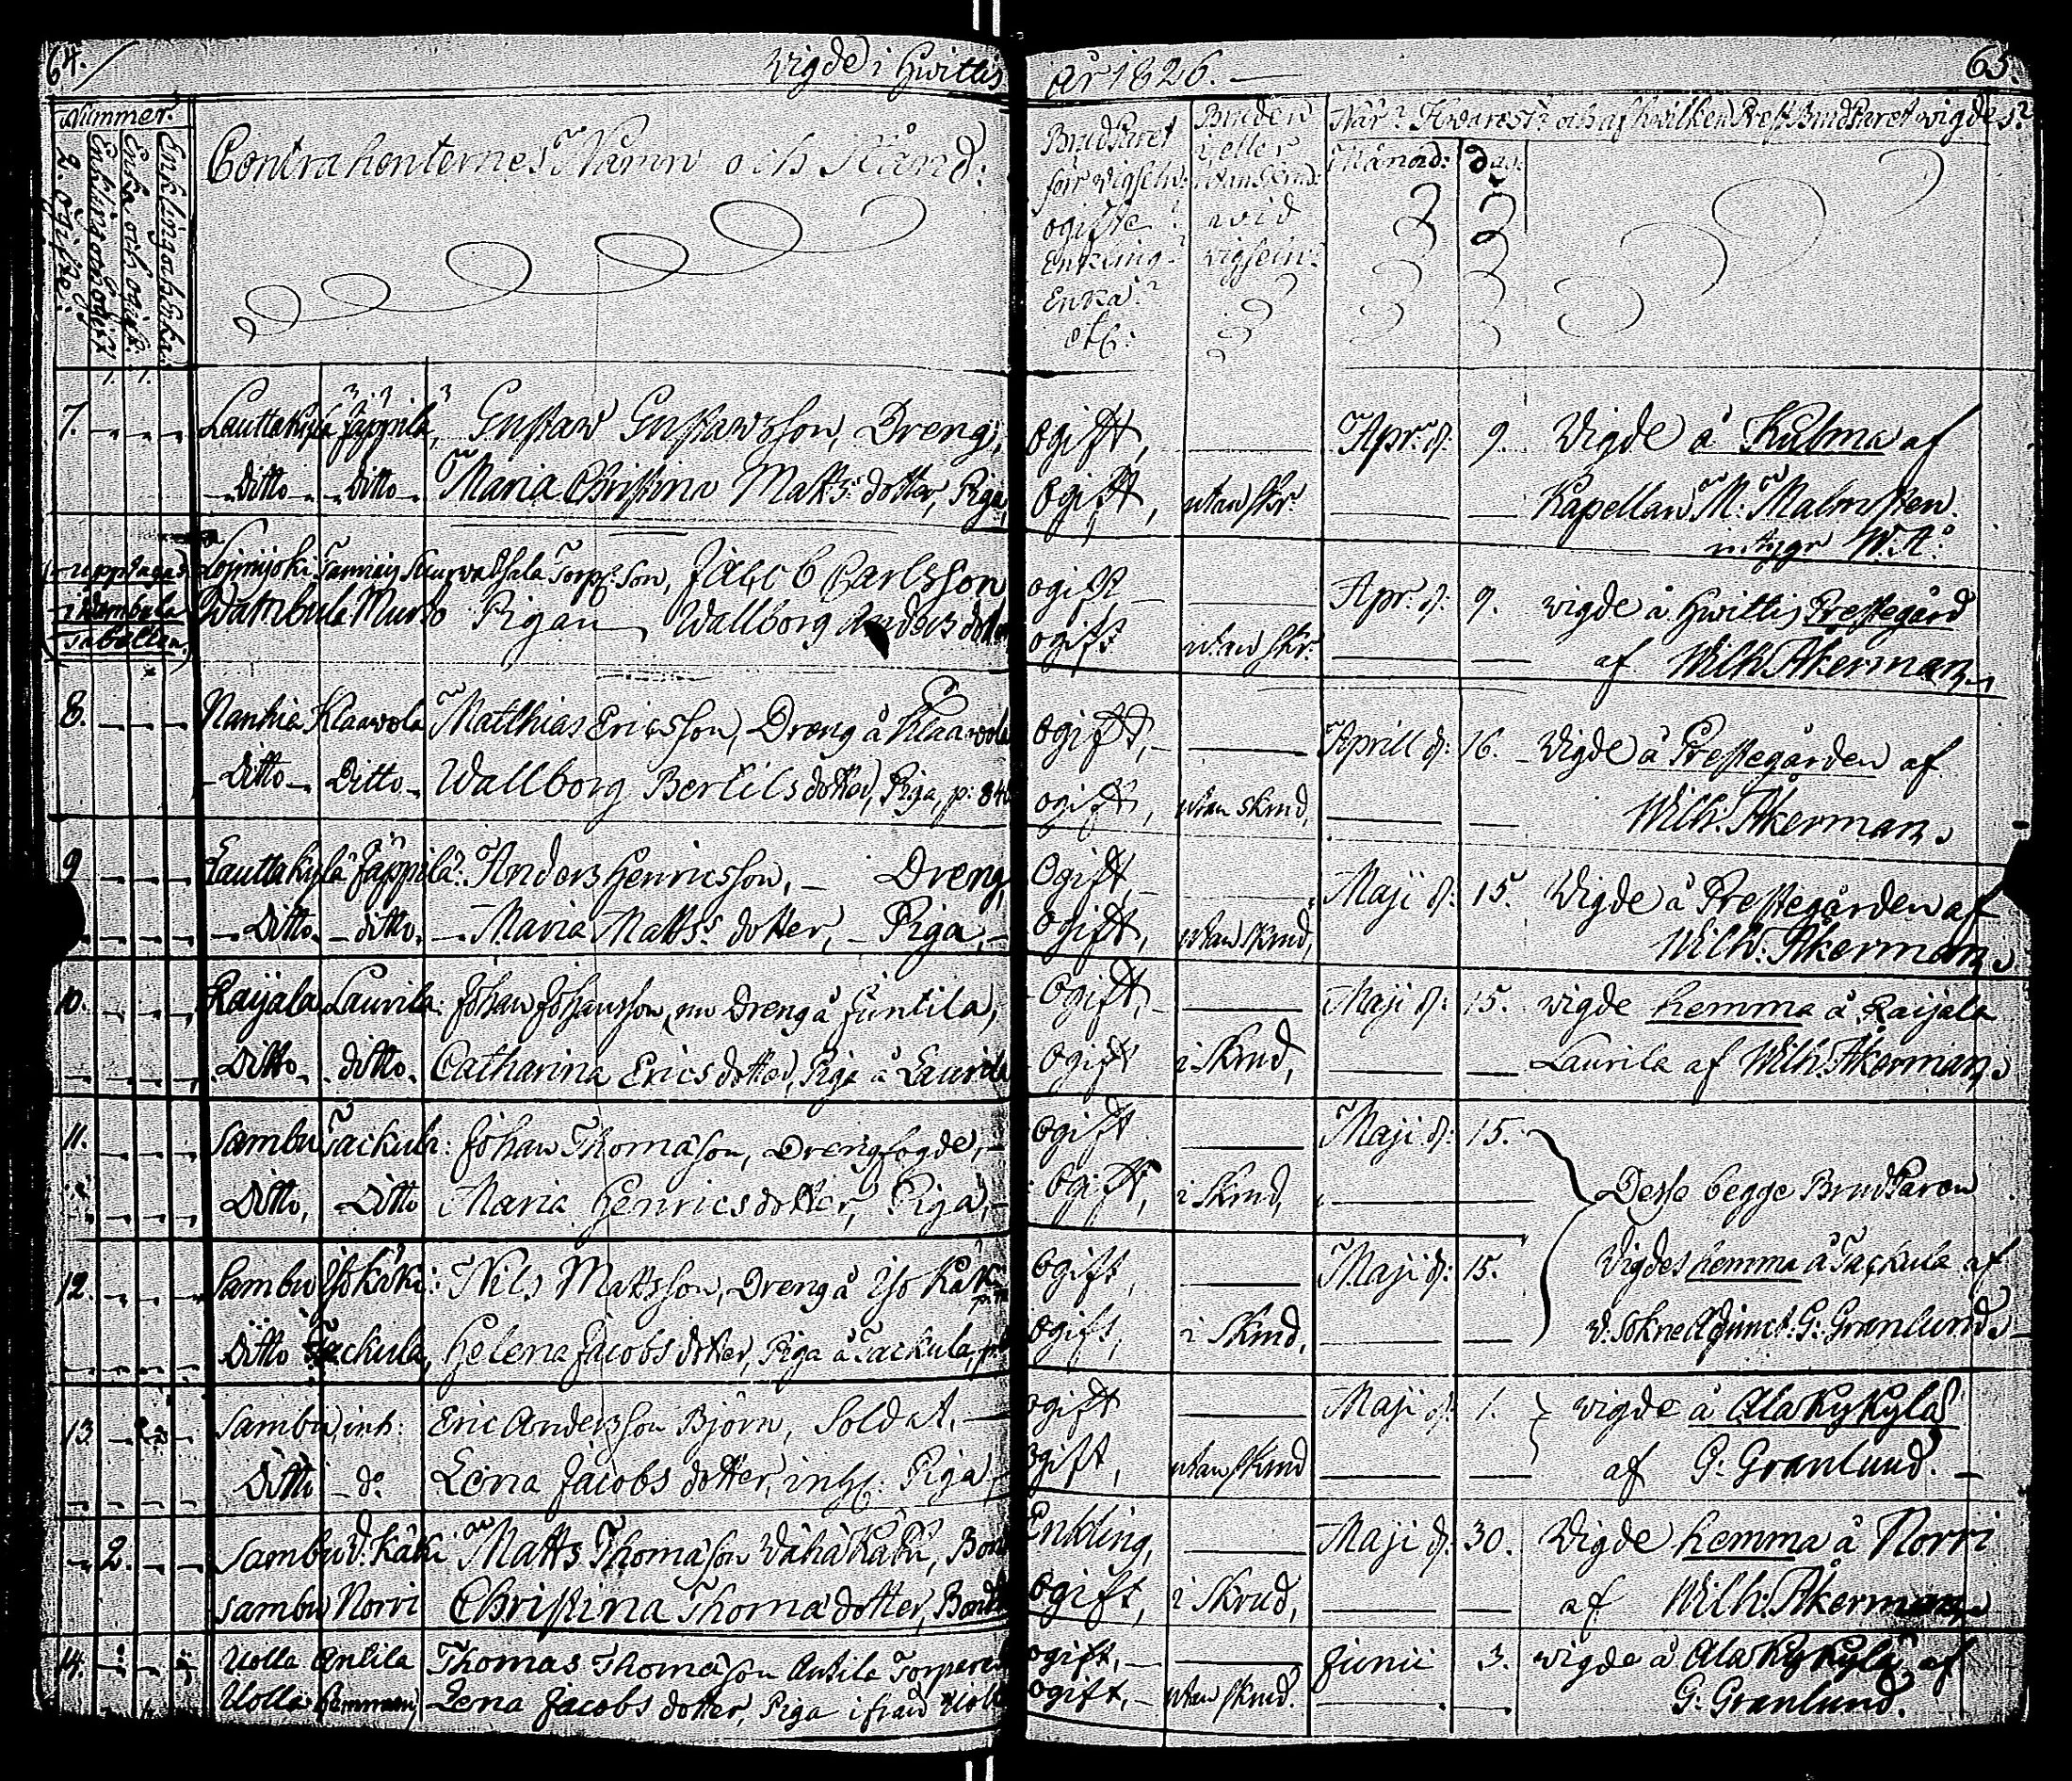 64. Vigde i Hwittis år 1826. 65.
Nummer.
2. Ogifte.
Enkling och ogift.
Enka och ogift.
Enkling och Enka.
Contrahenternes Namn och Stånd:
BrudParet för vigseln: ogifte? Enkling? Enka? etc:
Bruden i, eller utan skrud: vid vigseln?
När? Hwarest? och af hwilken Prest BrudParet vigdes?
Månad: Dag:
1. 1.
7. Lauttakylä Jäppilä, Gustaw Gustawsson, Dreng, Ogift, Apr. d: 9. Vigde å Kulma af
Ditto Ditto Maria Christina Matts dotter, Piga, Ogift, utan skr. Kapellan M: Malmsten.
intygr W. Å.
(upptagas i Wambula Tabellen.) Loimijoki Torp. Son, Jacob Carlsson ogift Apr. d. 9. vigde å Hwittis Prestegård
Wambula Murto Pigan Wallborg Anders dotter ogift utan skr. af Wilh. Åkerman.
8. Nanhia Klaawola Matthias Ericsson, Dreng å Klaawola Ogift, Aprill d: 16. Vigde å Prestegården af
Ditto Ditto Wallborg Bertils dotter, Piga, p: 84 ogift, utan skrud, Wilh. Åkerman.
9 Lauttakylä Jäppilä. Anders Henricsson, Dreng, Ogift, Maji d: 15. Vigde å Prestegården af
Ditto ditto. Maria Matts. dotter, Piga, Ogift, utan skrud, Wilh. Åkerman.
10. Raijala Laurila: Johan Johansson, nu Dreng å Juntila, Ogift, Maji d: 15. vigde hemma å Raijala
Ditto ditto. Catharina Erics dotter, Piga å Laurila Ogift i Skrud, Laurila af Wilh. Åkerman.
11. Sambu Tackula: Johan Thomasson, Drengfogde, Ogift Maji d: 15. Desse begge BrudParen
Ditto, Ditto Maria Henrics dotter, Piga, Ogift, i Skrud,
12. Sambu Iso Käki: Nils Mattsson, Dreng å Iso Käki Ogift, Maji d: 15. Vigdes hemma å Tackula af
Ditto Tackula, Helena Jacobs dotter, Piga å Tackula, Ogift, i Skrud, v: SokneAdjunct: G: Granlund.
13 Sambu, inh: Eric Andersson Björn, Soldat. Ogift Maji d: 1. vigde å AlaKyKylä
Ditto do Lena Jacobs dotter, inh: Piga Ogift, utan skrud af G: Granlund.
2. Sambu V: Käki Matts Thomasson Wähä Käki, Bonde Enkling, Maji d: 30. Vigde hemma å Norri
Sambu Norri Christina Thomas dotter, Ogift, i Skrud, af Wilh. Åkerman.
14. Uolla Antila Thomas Thomasson Antila Torpare ogift, Junii 3. vigde å AlaKyKylä af
Uolla Lena Jacobs dotter, Piga ifrån Uolla ogift, utan skrud. G: Granlund.